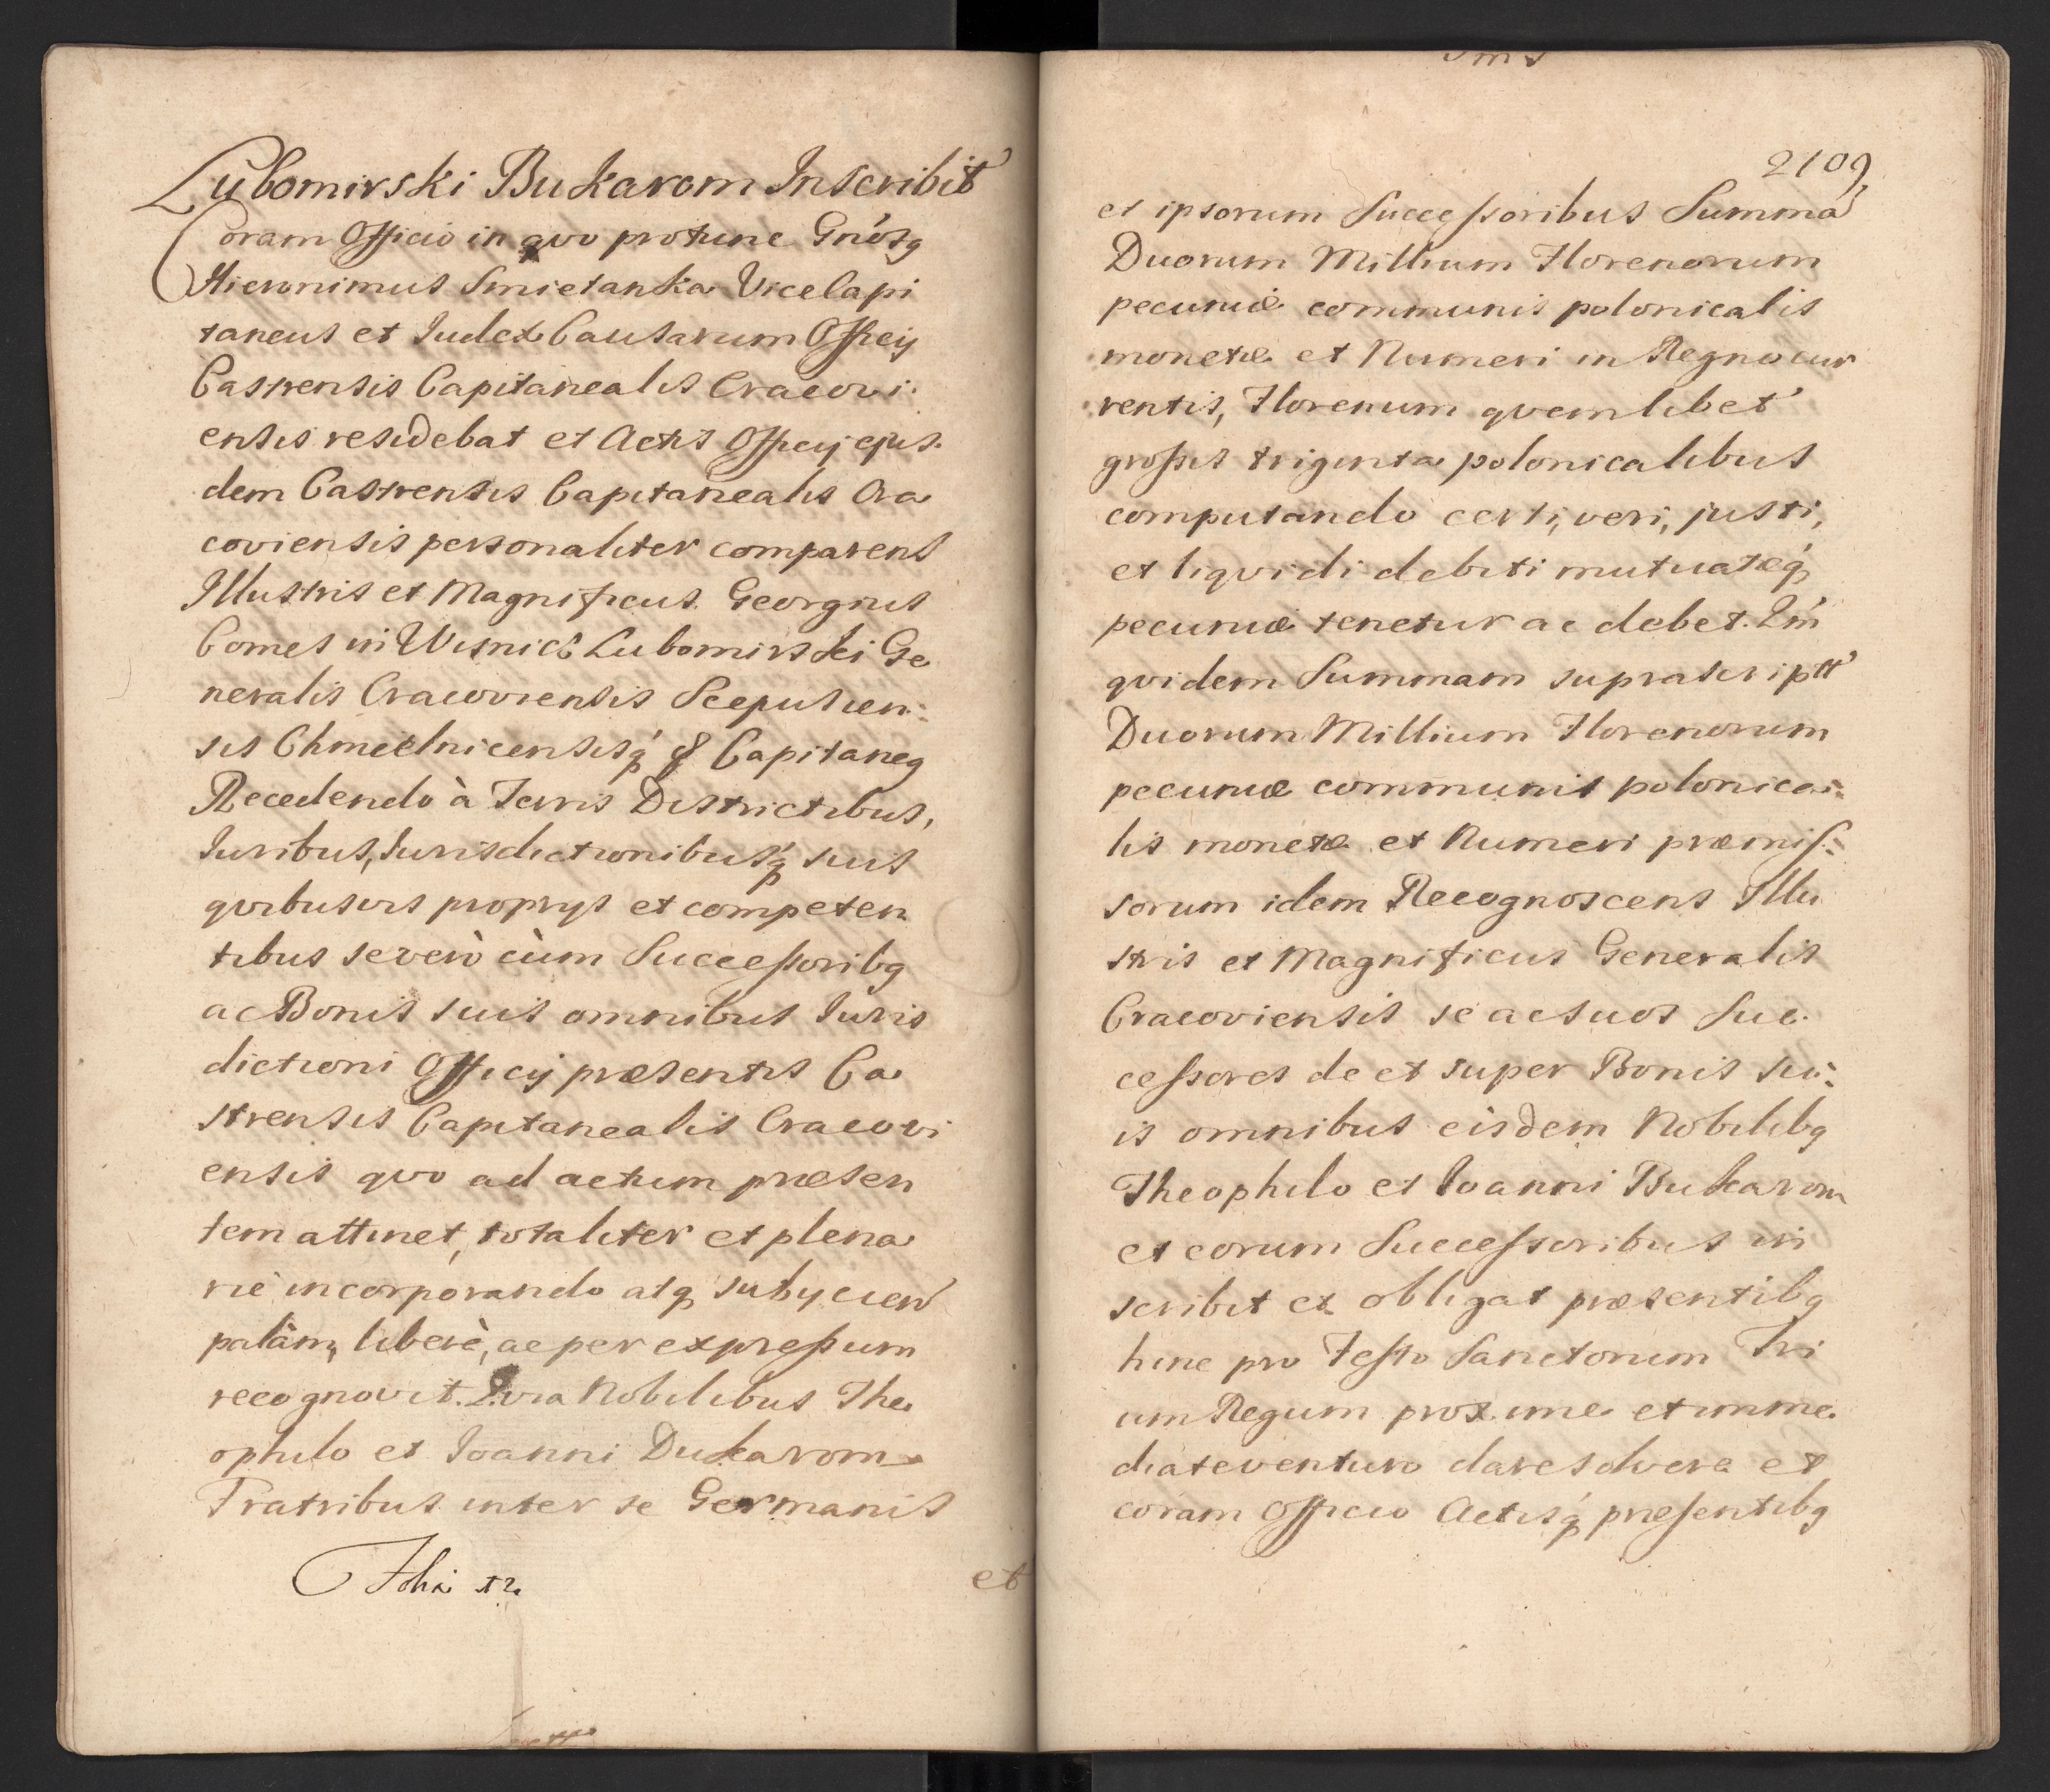 Lubomirski Bukarom Inscribit
Coram Officio in quo protunc Gnósq
Hieronimus Smietanka Vicecapi
taneus et Iudex Causarum Officij
Castrensis Capitanealis Cracovi:
ensis residebat et Actis Officij ejus:
dem Castrensis Capitanealis Cra
coviensis personaliter comparens
Illustris et Magnificus Georgius
Comes in Wisnicz Lubomirski Ge
neralis Cracoviensis Scepusien:
sis Chmielnicensisq́ Capitaneq
Recedendo à Terris Districtibus,
Iuribus, Iurisdictionibusq́ suis
quibusvis proprys et competen
tibus se verò cùm Successoribq
ac Bonis suis omnibus Iuris
dictioni Officij præsentis Ca
strensis Capitanealis Cracovi
ensis quo ad actum præsen
tem attinet, totaliter et plena
riè incorporando atq subycien
palàm, liberè, ac per expressum
recognovit. Quia Nobilibus The
ophilo et Ioanni Dukarom
Fratribus inter se Germanis
et
2109
et ipsorum Successoribus Summa
Duorum Millium Florenorum
pecuniæ communis polonicalis
monetæ et Numeri in Regno cur
rentis, Florenum quemlibet
grossis triginta polonicalibus
computando certi, veri, justi,
et liquidi debiti mutuatæq́
pecuniæ tenetur ac debet. Qḿ
quidem Summam suprascriptt
Duorum Millium Florenorum
pecuniæ communis polonica:
lis monetæ et Numeri præmis:
sorum idem Recognoscens Illu
stris et Magnificus Generalis
Cracoviensis se ac suos Suc:
cessores de et super Bonis su:
is omnibus eisdem Nobilibq
Theophilo et Ioanni Bukarom
et eorum Successoribus in
scribit et obligat præsentibq
hinc pro Festo Sanctorum Tri
um Regum proxime et imme
diate venturo dare solvere et
coram Officio Actisq́ præsentibq